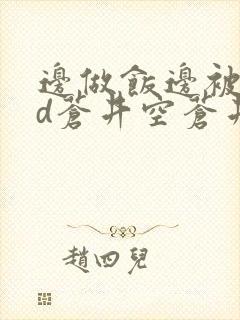 邊做飯邊被
d蒼井空蒼井
趙四兒